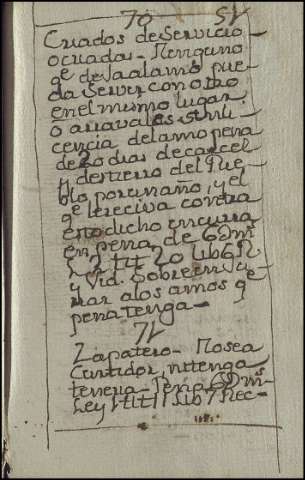 70 52
Criados de Servicio
o criadas - Ninguno
qe dexa al amo pue-
da Servir con otro
en el mismo lugar
o arravales sin li-
cencia del amo pena
de 20 dias de carcel
y destierro del Pue-
blo por un año, y el
qe le reciva contra
esto dicho incurra
en pena de 6 Dmrs
L 2 tit 20 Lib 6 R
y Vid. Sobre
nar a los amos qe
pena tenga -
71
Zapatero - No sea
Curtidor, ni tenga
teneria - Pena 6 Dmrs
Ley 1 tit 11 Lib 7 Rec -